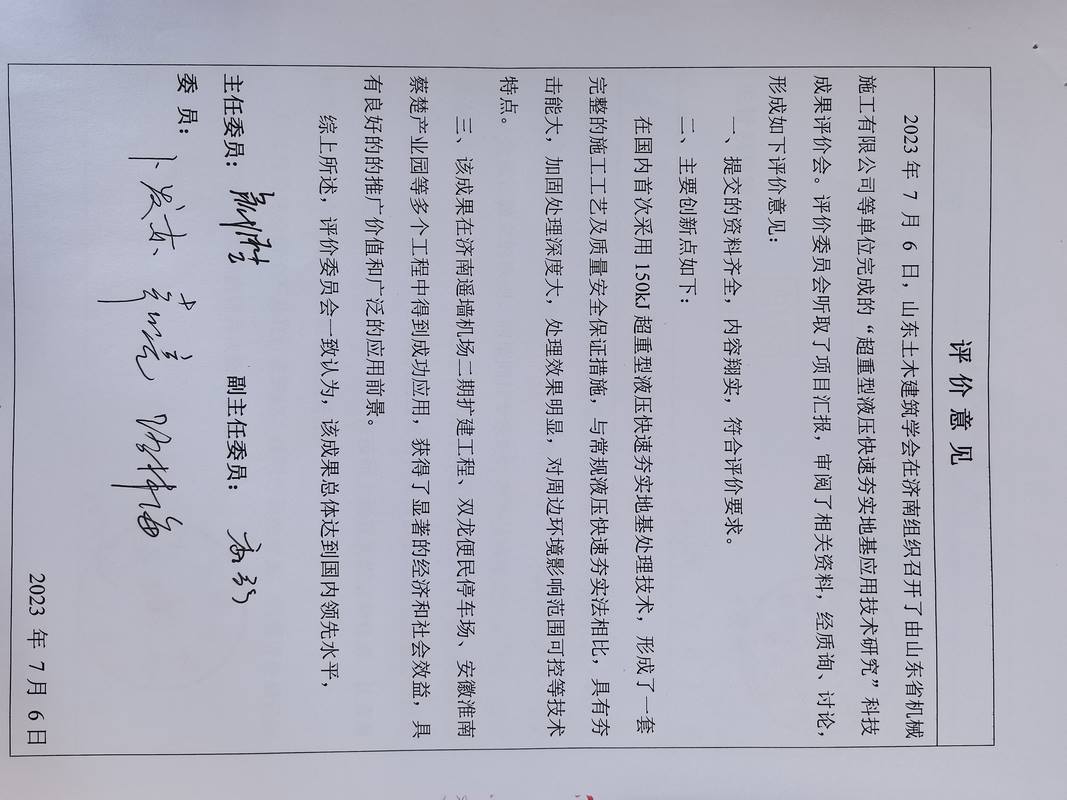 评价意见
2023 年 7 月 6 日，山东土木建筑学会在济南组织召开了由山东省机械
施工有限公司等单位完成的“超重型液压快速夯实地基应用技术研究”科技
成果评价会。评价委员会听取了项目汇报，审阅了相关资料，经质询、讨论，
形成如下评价意见：
一、提交的资料齐全，内容翔实，符合评价要求。
二、主要创新点如下：
在国内首次采用 150kJ 超重型液压快速夯实地基处理技术，形成了一套
完整的施工工艺及质量安全保证措施，与常规液压快速夯实法相比，具有夯
击能大，加固处理深度大，处理效果明显，对周边环境影响范围可控等技术
特点。
三、该成果在济南遥墙机场二期扩建工程、双龙便民停车场、安徽淮南
蔡楚产业园等多个工程中得到成功应用，获得了显著的经济和社会效益，具
有良好的的推广价值和广泛的应用前景。
综上所述，评价委员会一致认为，该成果总体达到国内领先水平，
主任委员： 副主任委员：
委 员：
2023 年 7 月 6 日